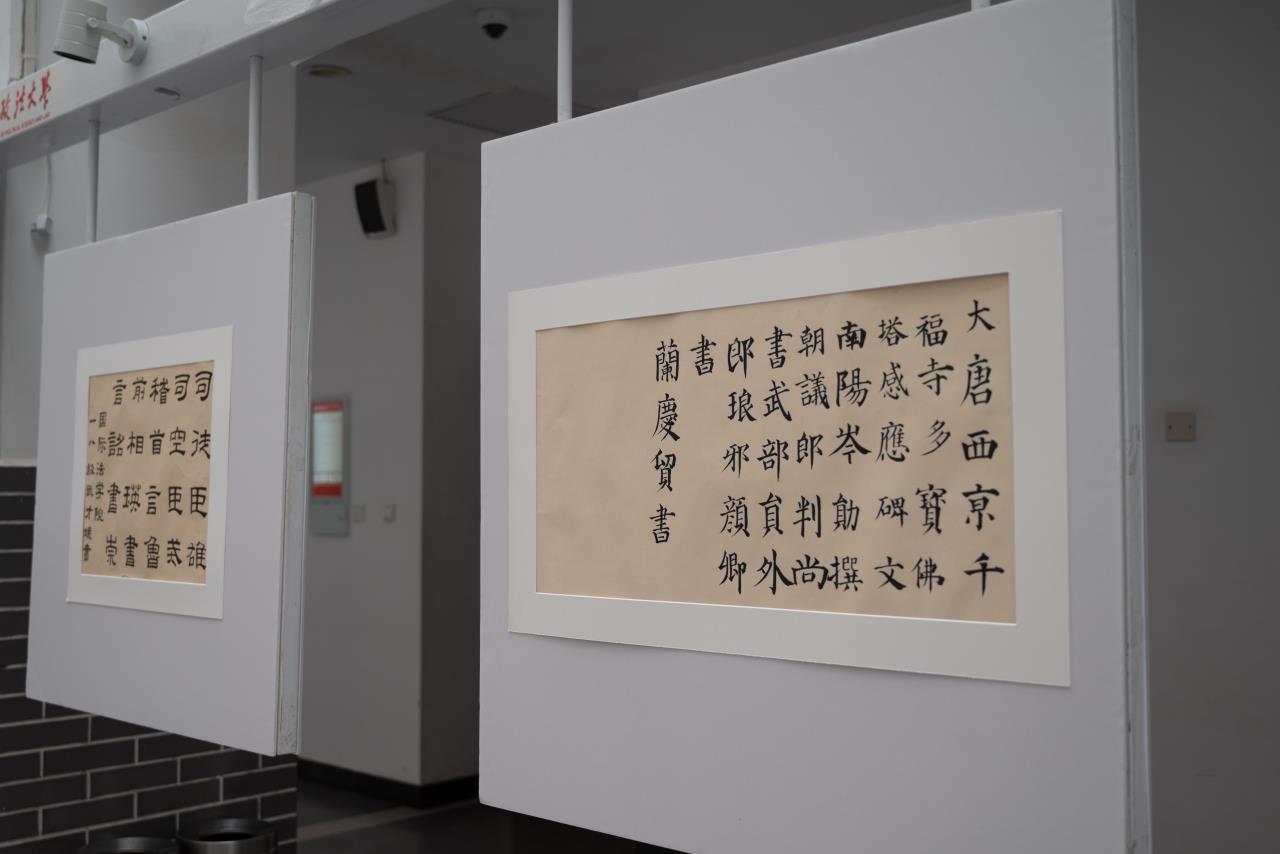 政法大學
OF POLITICAL SCIENCE AND LAW
司徒臣雄
司空臣戒
稽首言魯
前相瑛書
言詔書崇
国际法学院
一八级武才媛書
大唐西亰千
福寺多寶佛
塔感應碑文
南陽岑勛撰
朝議郎判尚
書武部員外
郎琅邪顏卿
書
蘭慶貿書